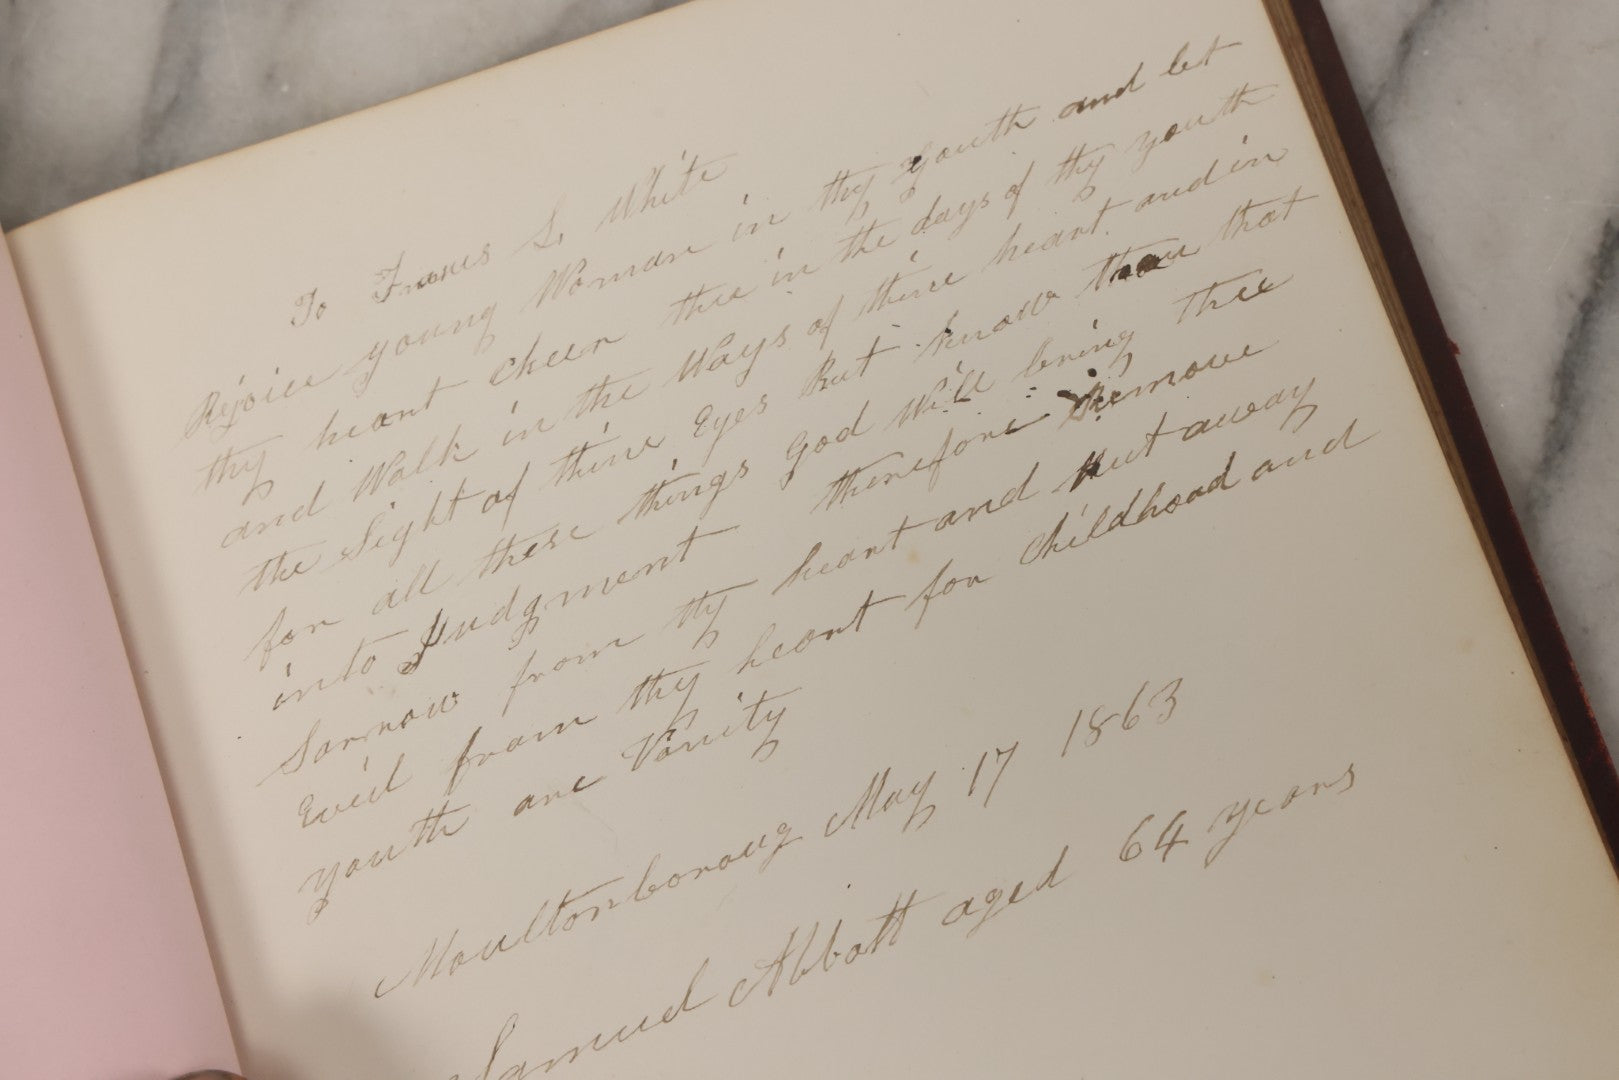 To Frances S. White
Rejoice young Woman in thy youth and let
thy heart cheer thee in the days of thy youth
and Walk in the Ways of thine heart and in
the Sight of thine Eyes But know thou that
for all these things God Will bring thee
into Judgment therefore Remove
Sorrow from thy heart and put away
Evil from thy heart for childhood and
youth are Vanity
Moultonboroug May 17 1863
Samuel Abbott aged 64 years